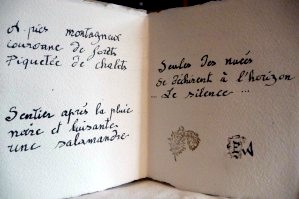 A pics montagneux
couronne de forêts
Piquetée de chalets
Sentier après la pluie
noire et luisante
une salamandre
Seules des nuées
se déchirent à l'horizon
... Le silence ...